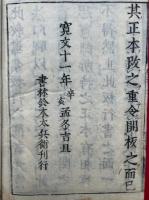 其正本改之重令開板之而已
寛文十一年辛亥孟冬吉旦
書林鈴木太兵衛刊行